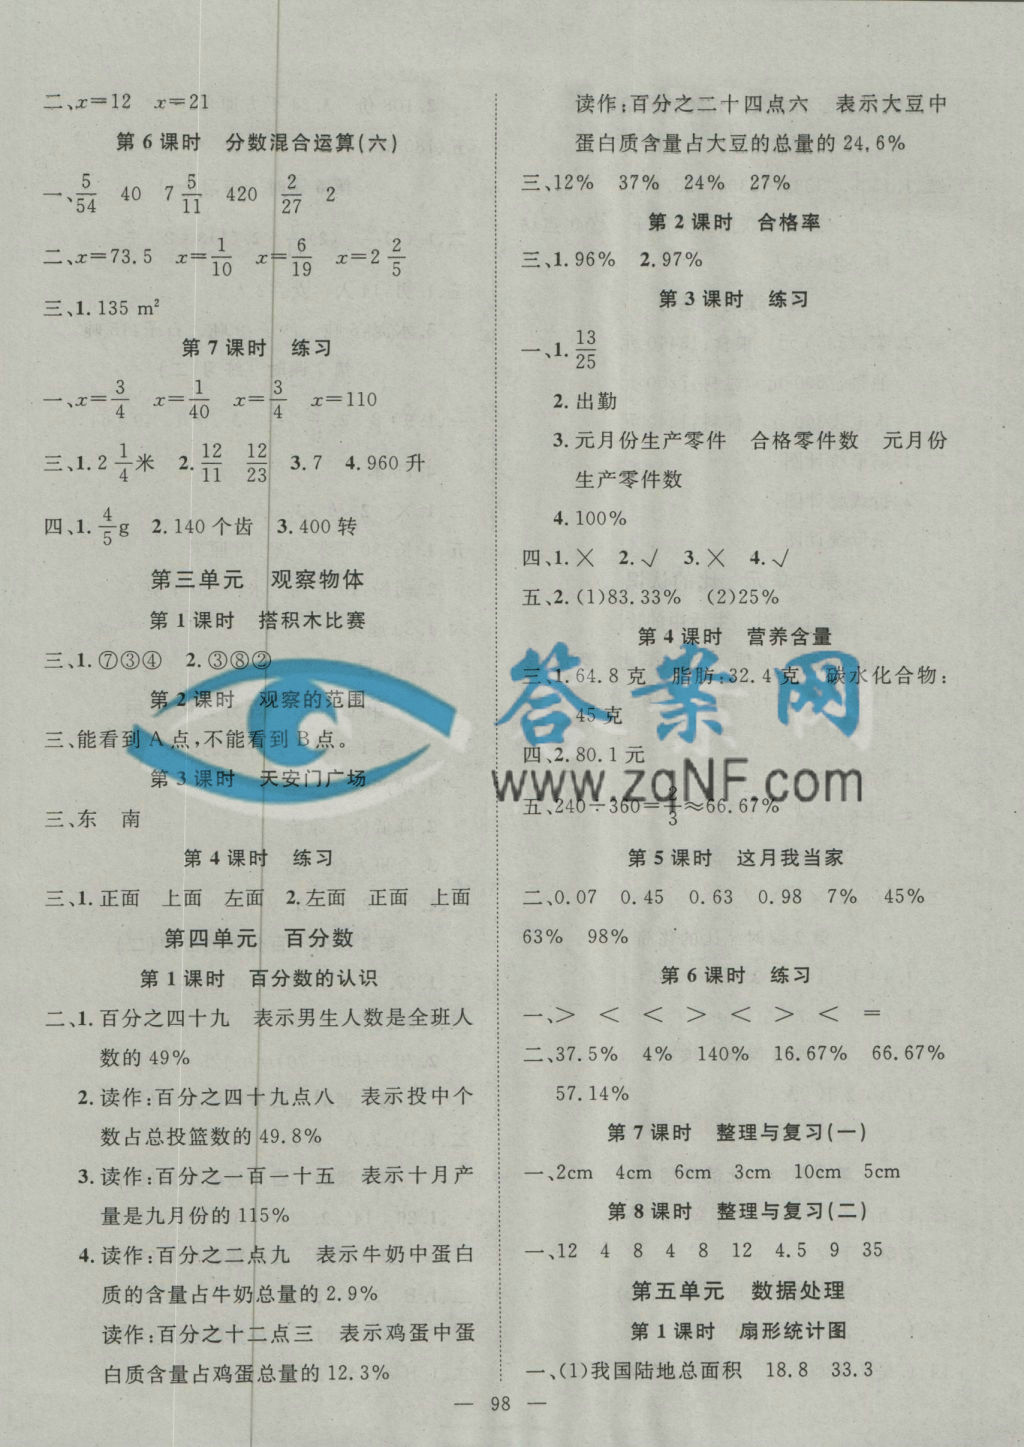 二、x=12 x=21
第6课时 分数混合运算(六)
一、5/54 40 7 5/11 420 2/27 2
二、x=73.5 x=1/10 x=6/19 x=2 2/5
三、1.135 m²
第7课时 练习
一、x=3/4 x=1/40 x=3/4 x=110
三、1.2 1/4米 2.12/11 12/23 3.7 4.960升
四、1.4/5g 2.140个齿 3.400转
第三单元 观察物体
第1课时 搭积木比赛
三、1.⑦③④ 2.③⑧②
第2课时 观察的范围
三、能看到A点,不能看到B点。
第3课时 天安门广场
三、东 南
第4课时 练习
三、1.正面 上面 左面 2.左面 正面 上面
第四单元 百分数
第1课时 百分数的认识
二、1.百分之四十九 表示男生人数是全班人
数的49%
2.读作:百分之四十九点八 表示投中个
数占总投篮数的49.8%
3.读作:百分之一百一十五 表示十月产
量是九月份的115%
4.读作:百分之二点九 表示牛奶中蛋白
质的含量占牛奶总量的2.9%
读作:百分之十二点三 表示鸡蛋中蛋
白质含量占鸡蛋总量的12.3%
读作:百分之二十四点六 表示大豆中
蛋白质含量占大豆的总量的24,6%
三、12% 37% 24% 27%
第2课时 合格率
三、1.96% 2.97%
第3课时 练习
一、1.13/25
2.出勤
3.元月份生产零件 合格零件数 元月份
生产零件数
4.100%
四、1.× 2.√ 3.× 4.√
五、2.(1)83.33% (2)25%
第4课时 营养含量
三、1.64.8克 脂肪:32.4克 碳水化合物:
45克
四、2.80.1元
五、240÷360=2/3≈66.67%
第5课时 这月我当家
二、0.07 0.45 0.63 0.98 7% 45%
63% 98%
第6课时 练习
一、> < < > < > < =
二、37.5% 4% 140% 16.67% 66.67%
57.14%
第7课时 整理与复习(一)
一、2cm 4cm 6cm 3cm 10cm 5cm
第8课时 整理与复习(二)
一、12 4 8 4 8 12 4.5 9 35
第五单元 数据处理
第1课时 扇形统计图
一、(1)我国陆地总面积 18.8 33.3
— 98 —
答案网
www.zqNF.com